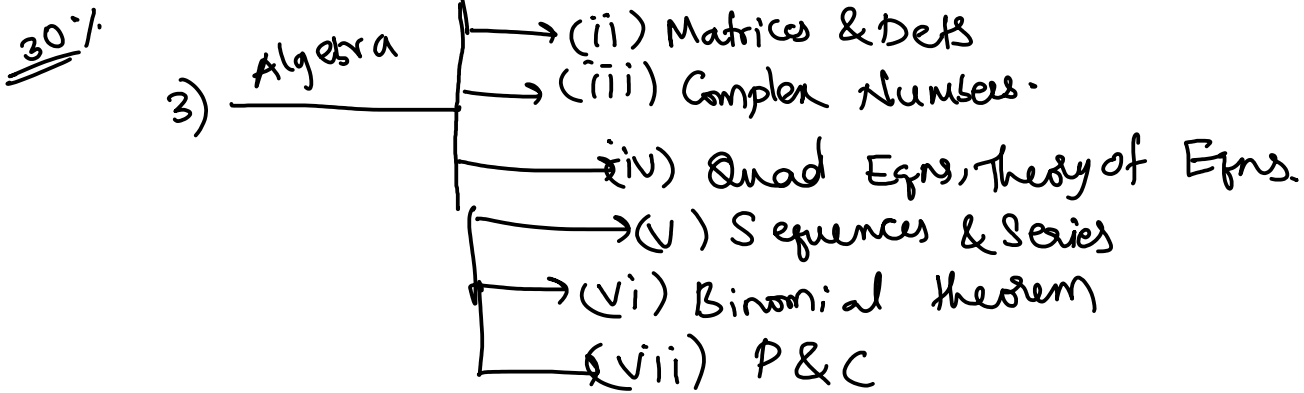 30%
3) Algebra
(ii) Matrices & Dets
(iii) Complex Numbers.
(iv) Quad Eqns, Theory of Eqns.
(v) Sequences & Series
(vi) Binomial theorem
(vii) P & C